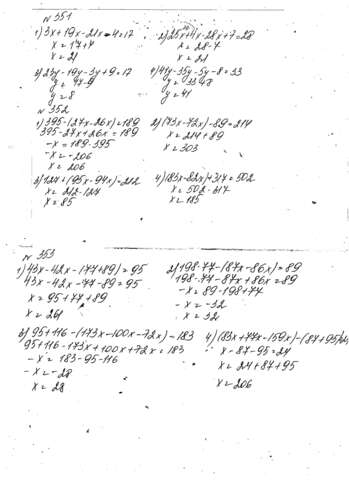 № 351
1) 3x+19x-21x-4=17 2) 25x+4x-28x+7=28
x=17+4 x=28-7
x=21 x=21
3) 23y-19y-3y+9=17 4) 41y-35y-5y-8=33
y=17-9 y=33+8
y=8 y=41
№ 352
1) 395-(27x-26x)=189 2) (73x-72x)-89=214
395-27x+26x=189 x=214+89
-x=189-395 x=303
-x=-206
x=206
3) 127+(95x-94x)=212 4) (83x-82x)+317=502
x=212-127 x=502-317
x=85 x=185
№ 353
1) 43x-42x-(77+89)=95 2) (198-77-(87x-86x)=89
43x-42x-77-89=95 198-77-87x+86x=89
x=95+77+89 -x=89-198+77
x=261 -x=-32
x=32
3) 95+116-(173x-100x-72x)-183 4) (83x+77x-159x)-(87+95)=24
95+116-173x+100x+72x=183 x-87-95=24
-x=183-95-116 x=24+87+95
-x=-28 x=206
x=28